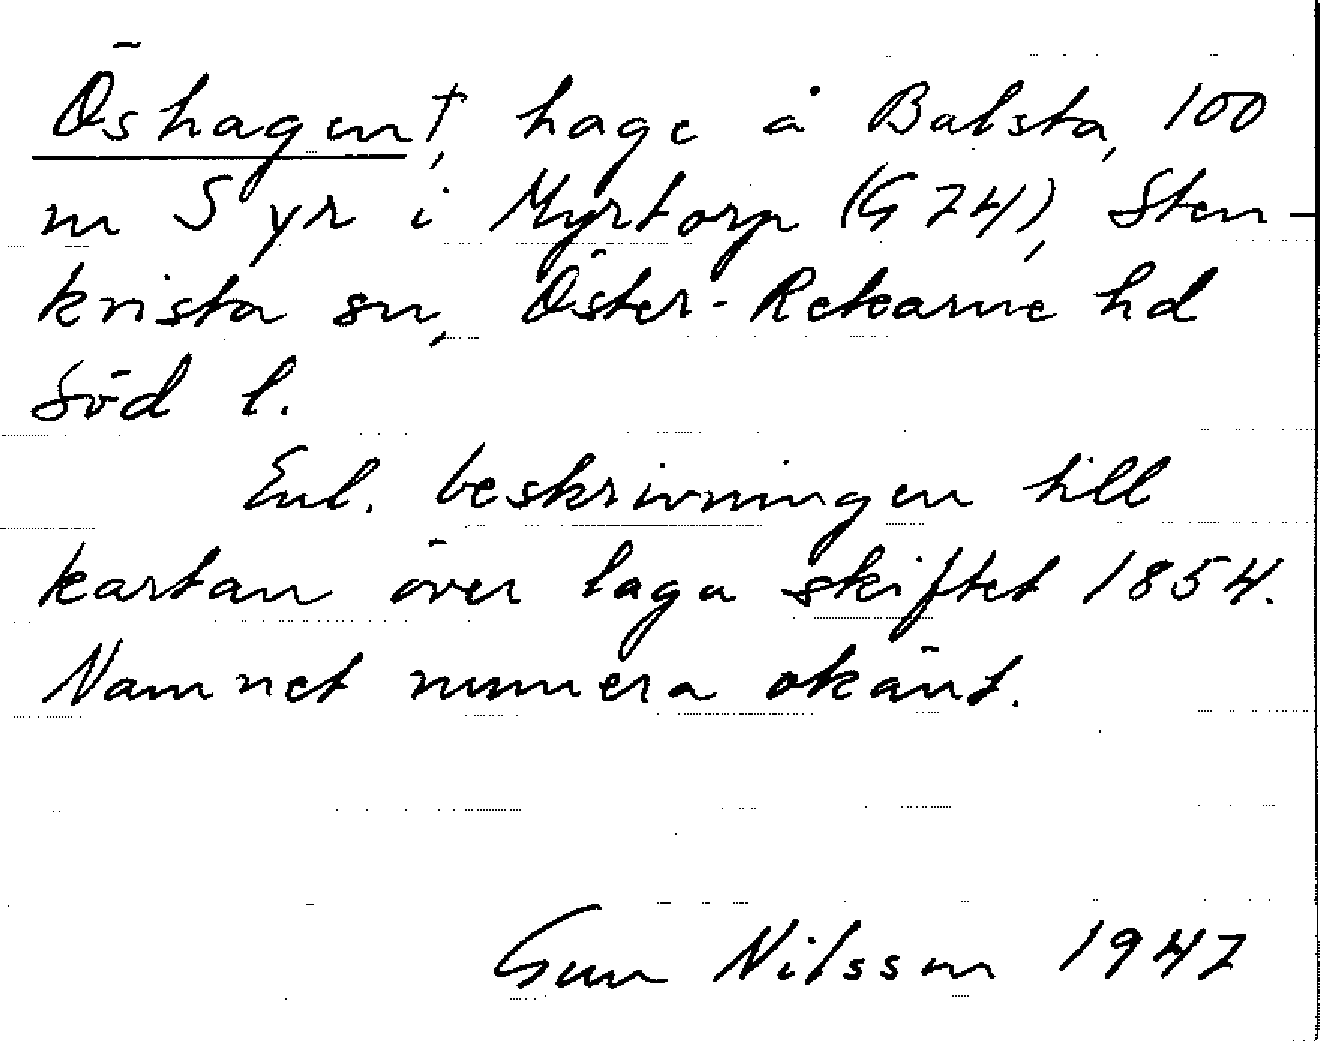 Öshagen†, hage å Balsta, 100
m S yr i Myrtorp (G 74), Sten-
kvista sn, Öster-Rekarne hd
Söd l.
Enl. beskrivningen till
kartan över laga skiftet 1854.
Namnet numera okänt.
Gun Nilsson 1947